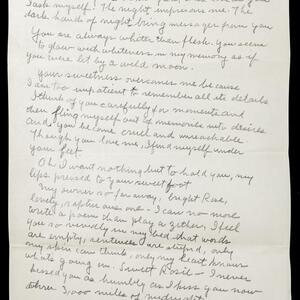 I ask myself! The night imprisons me. The
dark hands of night bring messages from you
You are always whiter than flesh. You seem
to glow with whiteness in my memory as if
you were lit by a wild moon.
Your sweetness overcomes me because
I am too impatient to remember all its details
I think of you carefully for moments and
then fling myself out of memories into desires
And you become cruel and unreachable
Though you love me, I find myself under
your feet.
Oh I want nothing but to hold you, my
lips pressed to your sweet foot
My owner so far away, bright Rose,
lovely, rapier ause me. I can no more
write a poem than play a zither. I feel
you so nervously in my bed that words
are empty, sentences are stupid, only
my skin can think, only my heart knows
whats going on. Sweet Rosie - I never
kissed you as humbly as I kiss you now
over 3,000 miles of midnight.